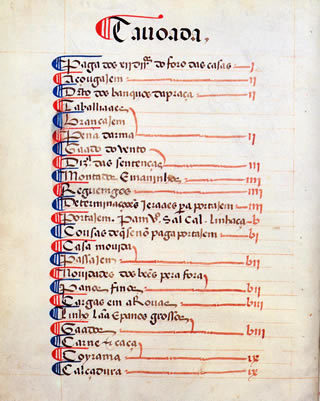 Tauoada.
Paga dos xij drs. do foro das casas — j
Açougajem — ij
Drto dos bancos da praça — ij
Tabaliiaaes
Brancajem
Pena darma — ij
Gaado do vento
Diz. das sentenças — iij
Montador E maninhos — iiij
Reguengos — iiij
Determinações Jeraaes pa portajem — iiij
Portajem. Pam vo. Sal Cal. Linhaça — b
Cousas de q se nõ paga portajem — bj
Casa mouida
Passajem — bij
Nouidades dos bẽes pera fora
Panos finos — bij
Cargas em aRouas — biij
Linho lãa E panos grossos
Gaados — biij
Carne & caça
Coyrama — ix
Calçadura — ix